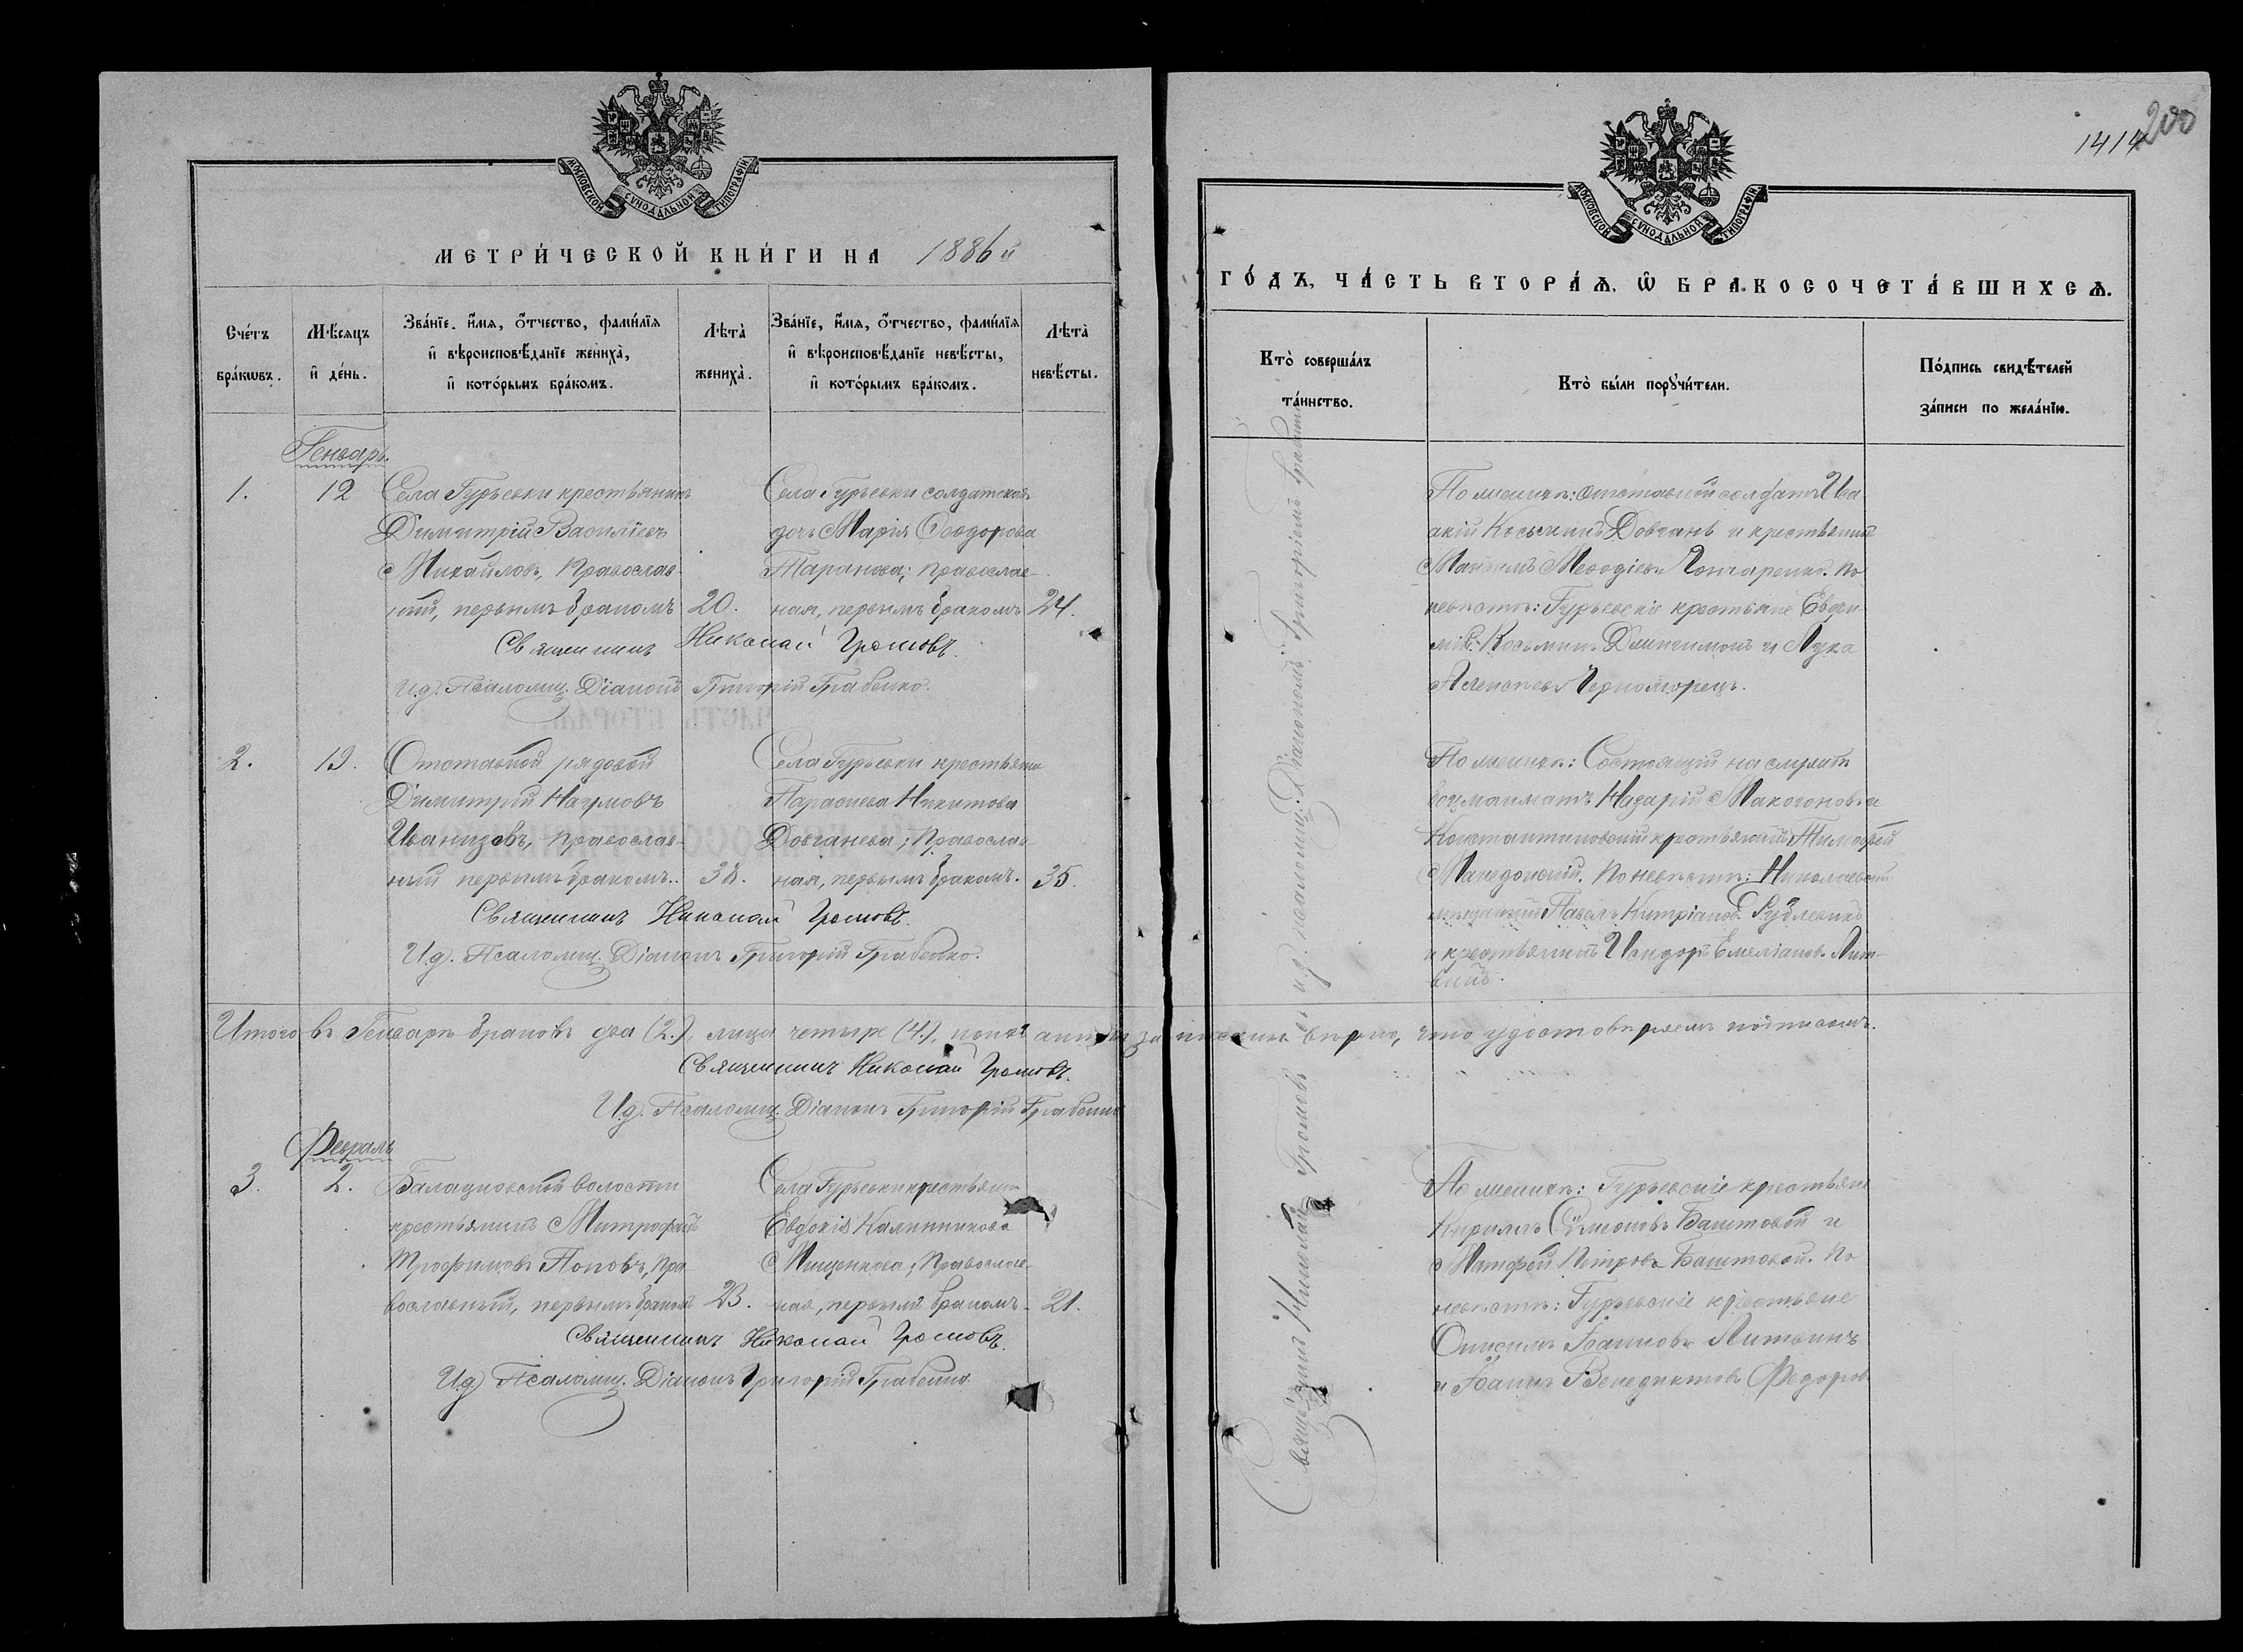 МОСКОВСКОЙ СУНОДАЛЬНОЙ ТИПОГРАФІИ
МЕТРИ́ЧЕСКОЙ КНИ́ГИ НА 1886й
Сче́тъ бра́кѡвъ.
Мѣ́сяцъ и҆ де́нь.
Зва́нїе. и҆́мя, ѻ҆́тчество, фами́лїя
и҆ вѣроисповѣ́данїе жениха̀,
и҆ кото́рымъ бра́комъ.
Лѣта̀ жениха̀.
Зва́нїе, и҆́мя, ѻ҆́тчество, фами́лїя
и҆ вѣроисповѣ́данїе невѣ́сты,
и҆ кото́рымъ бра́комъ.
Лѣта̀ невѣ́сты.
Генварь.
1.
12
Села Гурьевки крестьянинъ
Димитрій Василіевъ
Михайловъ, Православ-
ный, первымъ бракомъ
20.
Села Гурьевки солдатская
дочь Марія Ѳеодорова
Таранова; православ-
ная, первымъ бракомъ
24.
Священникъ Николай Громовъ.
И.д. Псаломщ. Діаконъ Григорій Грабенко.
2.
19.
Отставной рядовой
Димитрій Наумовъ
православ-
ный первымъ бракомъ.
38.
Села Гурьевки крестьянка
Параскева Никитова
Довганева; Православ-
ная, первымъ бракомъ.
35.
Священникъ Николай Громовъ.
И.д. Псаломщ. Діаконъ Григорій Грабенко.
Итого въ Генварѣ браковъ два (2.), лицъ четыре (4.), вѣрно, что удостовѣряемъ подписомъ.
Священникъ Николай Громовъ.
И.д. Псаломщ. Діаконъ Григорій Грабенко
Февраль
3.
2.
волости
крестьянинъ Митрофанъ
Трофимовъ Поповъ, Пра-
вославный, первымъ бракомъ
23.
Села Гурьевки крестьянка
Евдокія Калинникова
Мищенкова; Православ-
ная, первымъ бракомъ
21.
Священникъ Николай Громовъ.
И.д. Псаломщ. Діаконъ Григорій Грабенко
1414
200
МОСКОВСКОЙ СУНОДАЛЬНОЙ ТИПОГРАФІИ
ГО́ДЪ, ЧА́СТЬ ВТОРА́Ѧ, Ѡ҆ БРАКОСОЧЕТА́ВШИХСѦ.
Кто̀ соверша́лъ
та́инство.
Кто̀ бы́ли порꙋчи́тели.
По́дпись свидѣ́телей
за́писи по жела́нїю.
Священникъ Николай Громовъ съ и.д. псаломщ. Діакономъ Григоріемъ Грабенко
По женихѣ: отставной солдатъ Иса-
акій Косьминъ Довгань и крестьянинъ
Маѳодіевъ Гончаренко. По
невѣстѣ: Гурьевскіе крестьяне Евѳи-
мій Косьминъ и Лука
Алексѣевъ Черноморецъ.
По женихѣ: Состоящій на службѣ
боцманматъ Назарій Макогоновъ и
Константиновскій крестьянинъ Тимофей
Македонскій. По невѣстѣ: Николаевскій
мѣщанинъ Павелъ
и крестьянинъ Исидоръ Емеліановъ Лит-
винъ.
По женихѣ: Гурьевскіе крестьяне
Кириллъ Сѵмеоновъ Баштовой и
Матфей Петровъ Баштовой. По
невѣстѣ: Гурьевскіе крестьяне
Онисимъ Іоанновъ Литвинъ
и Іоаннъ Венедиктовъ Федоровъ